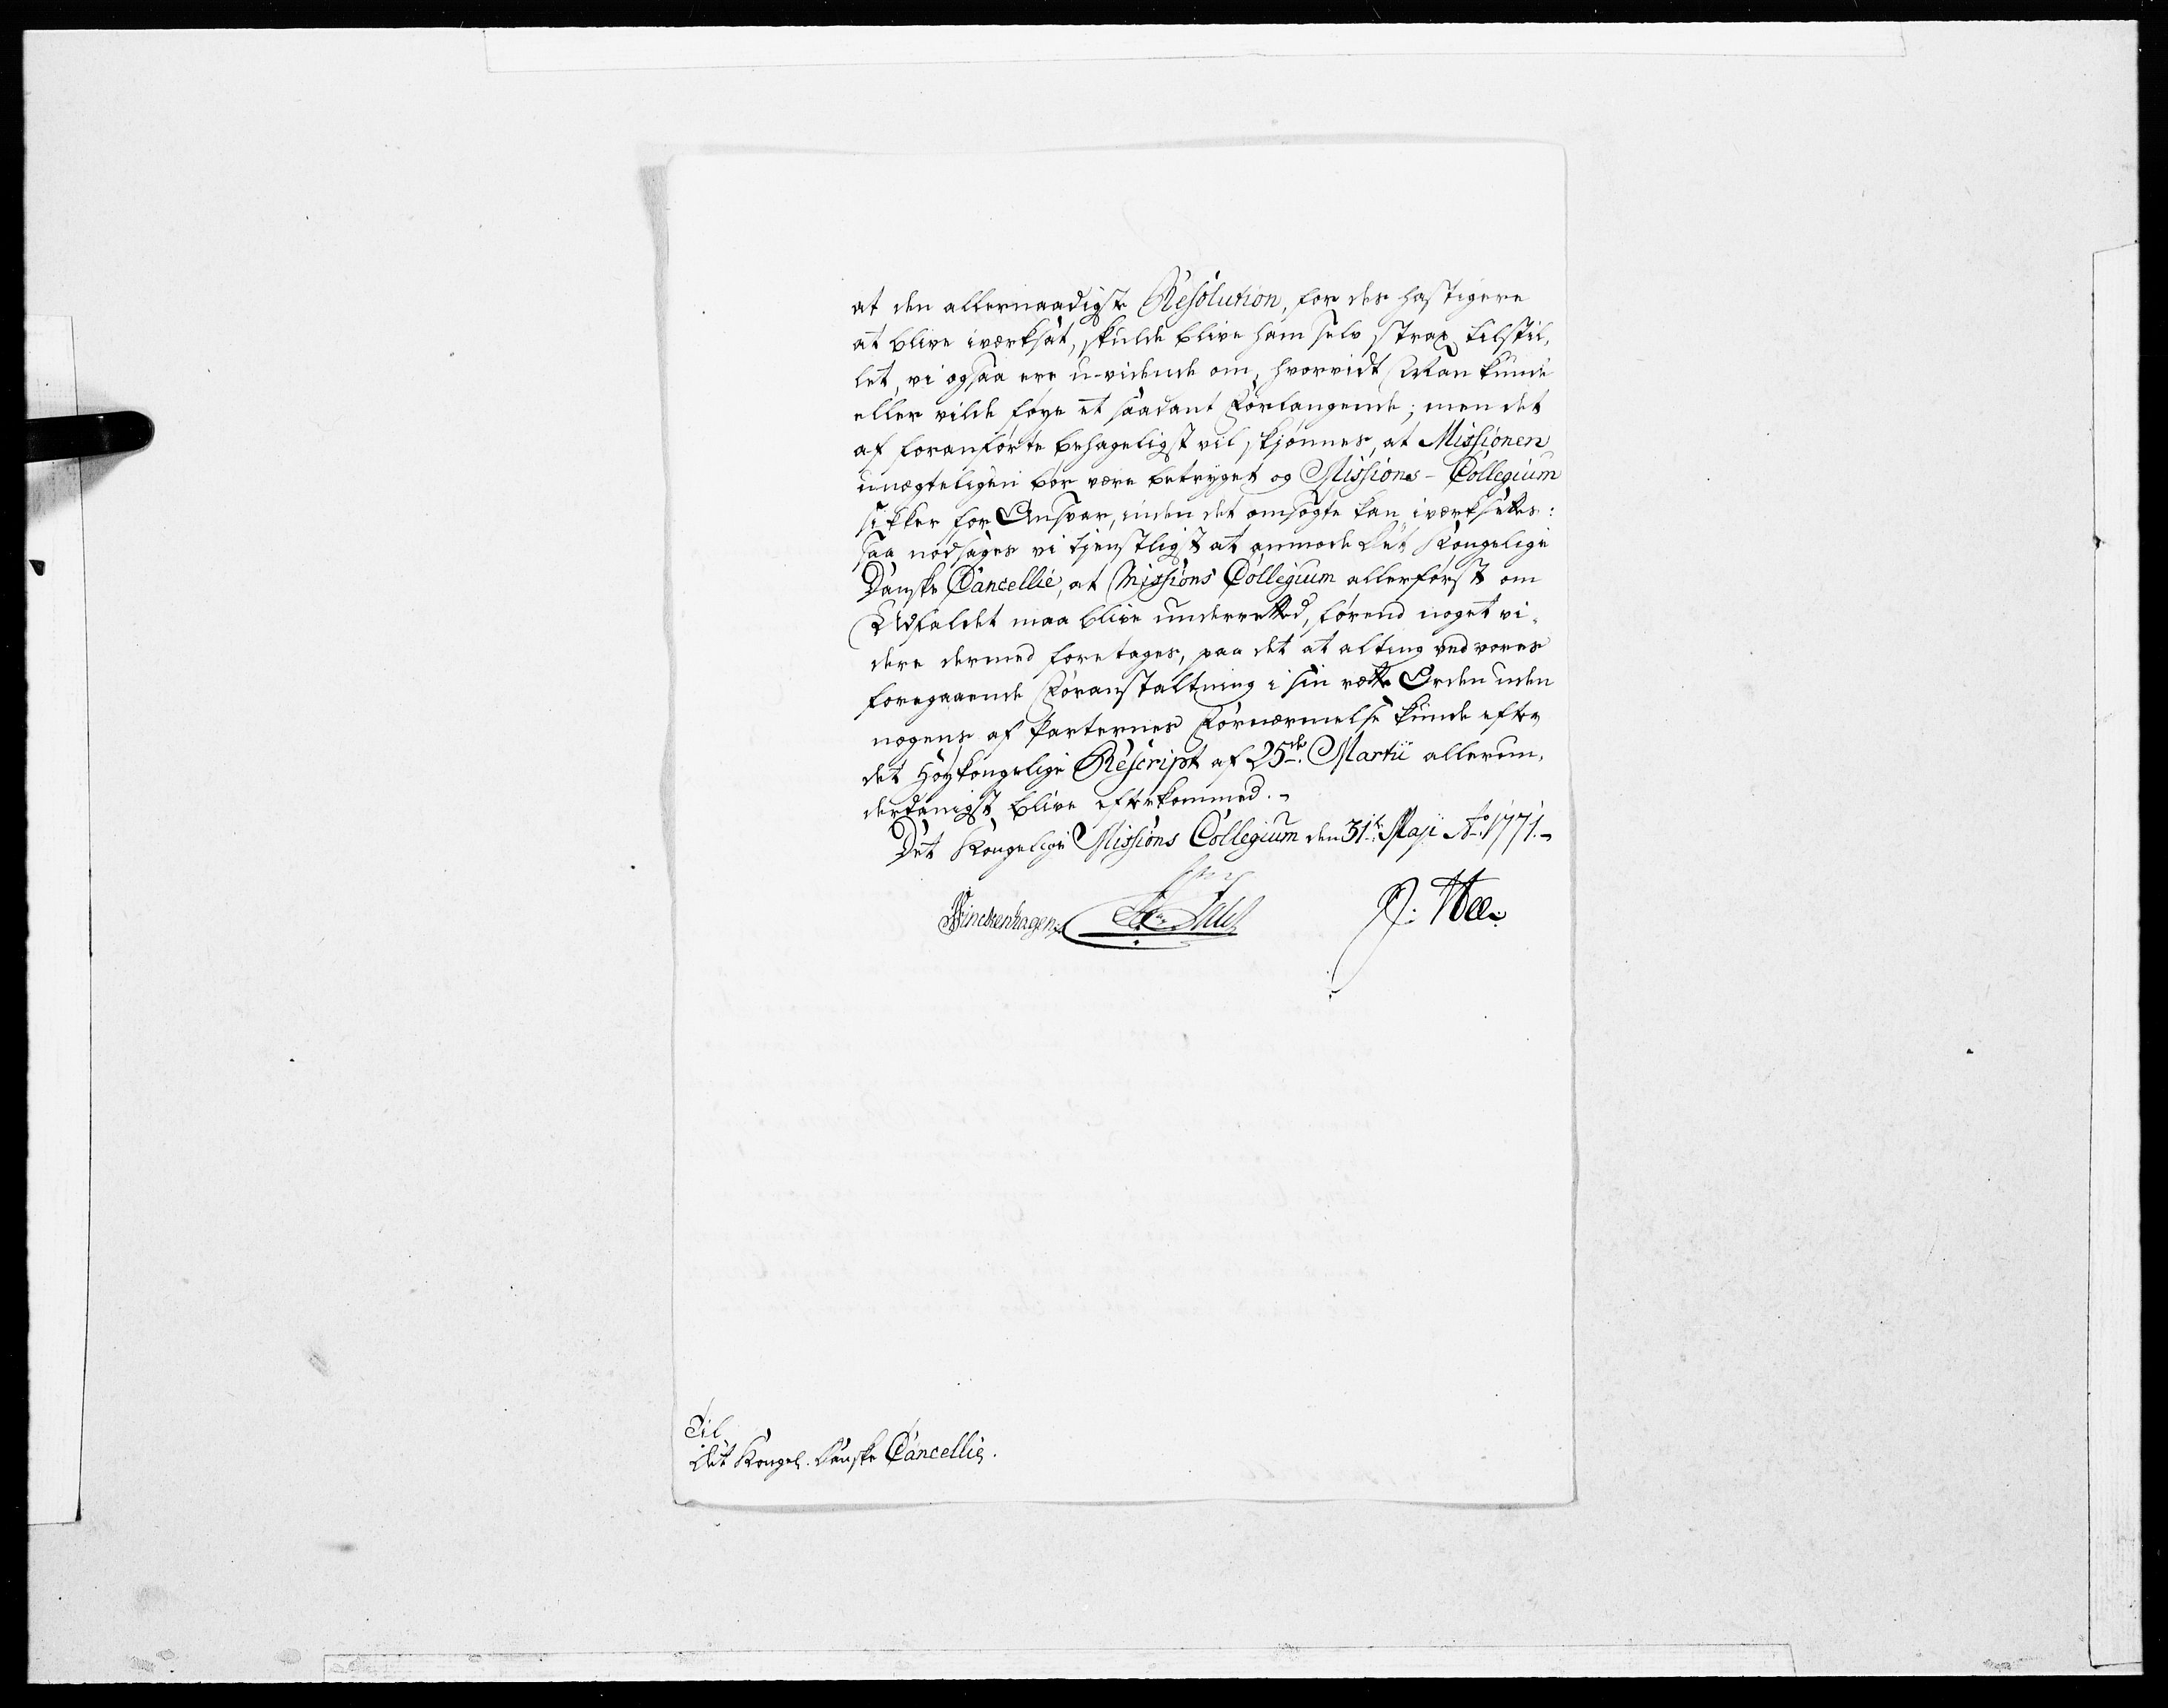 at den allernaadigste Resolution, for des hastigere
at blive iværksat, skulde blive ham selv strax tilstil,
let, vi ogsaa ere u-vidende om, hvorvidt Man kunde
eller vilde føye et saadant Forlangende; men det
af foranførte behageligst vil skjønnes, at Missionen
unægteligen bør være betrygget og Missions-Collegium
sikker for Ansvar, inden det ansøgte kan iværksættes:
saa nødsages vi tjenstligst at anmode Det Kongelige
Danske Cancellie, at Missions Collegium allerførst om
Udfaldet maa blive underretted, førend noget vi-
dere dermed foretages, paa det at alting ved vores
foregaaende Foranstaltning i sin rætte Orden uden
nogens af Parternes Fornærmelse kunde efter
det Høykongelige Rescript af 25de Martii allerun,
derdanigst blive efterkommed.
Det Kongelige Missions Collegium den 31te Maji Ao. 1771.
Finckenhagen J: Hee
Til
Det Kongel. Danske Cancellie.